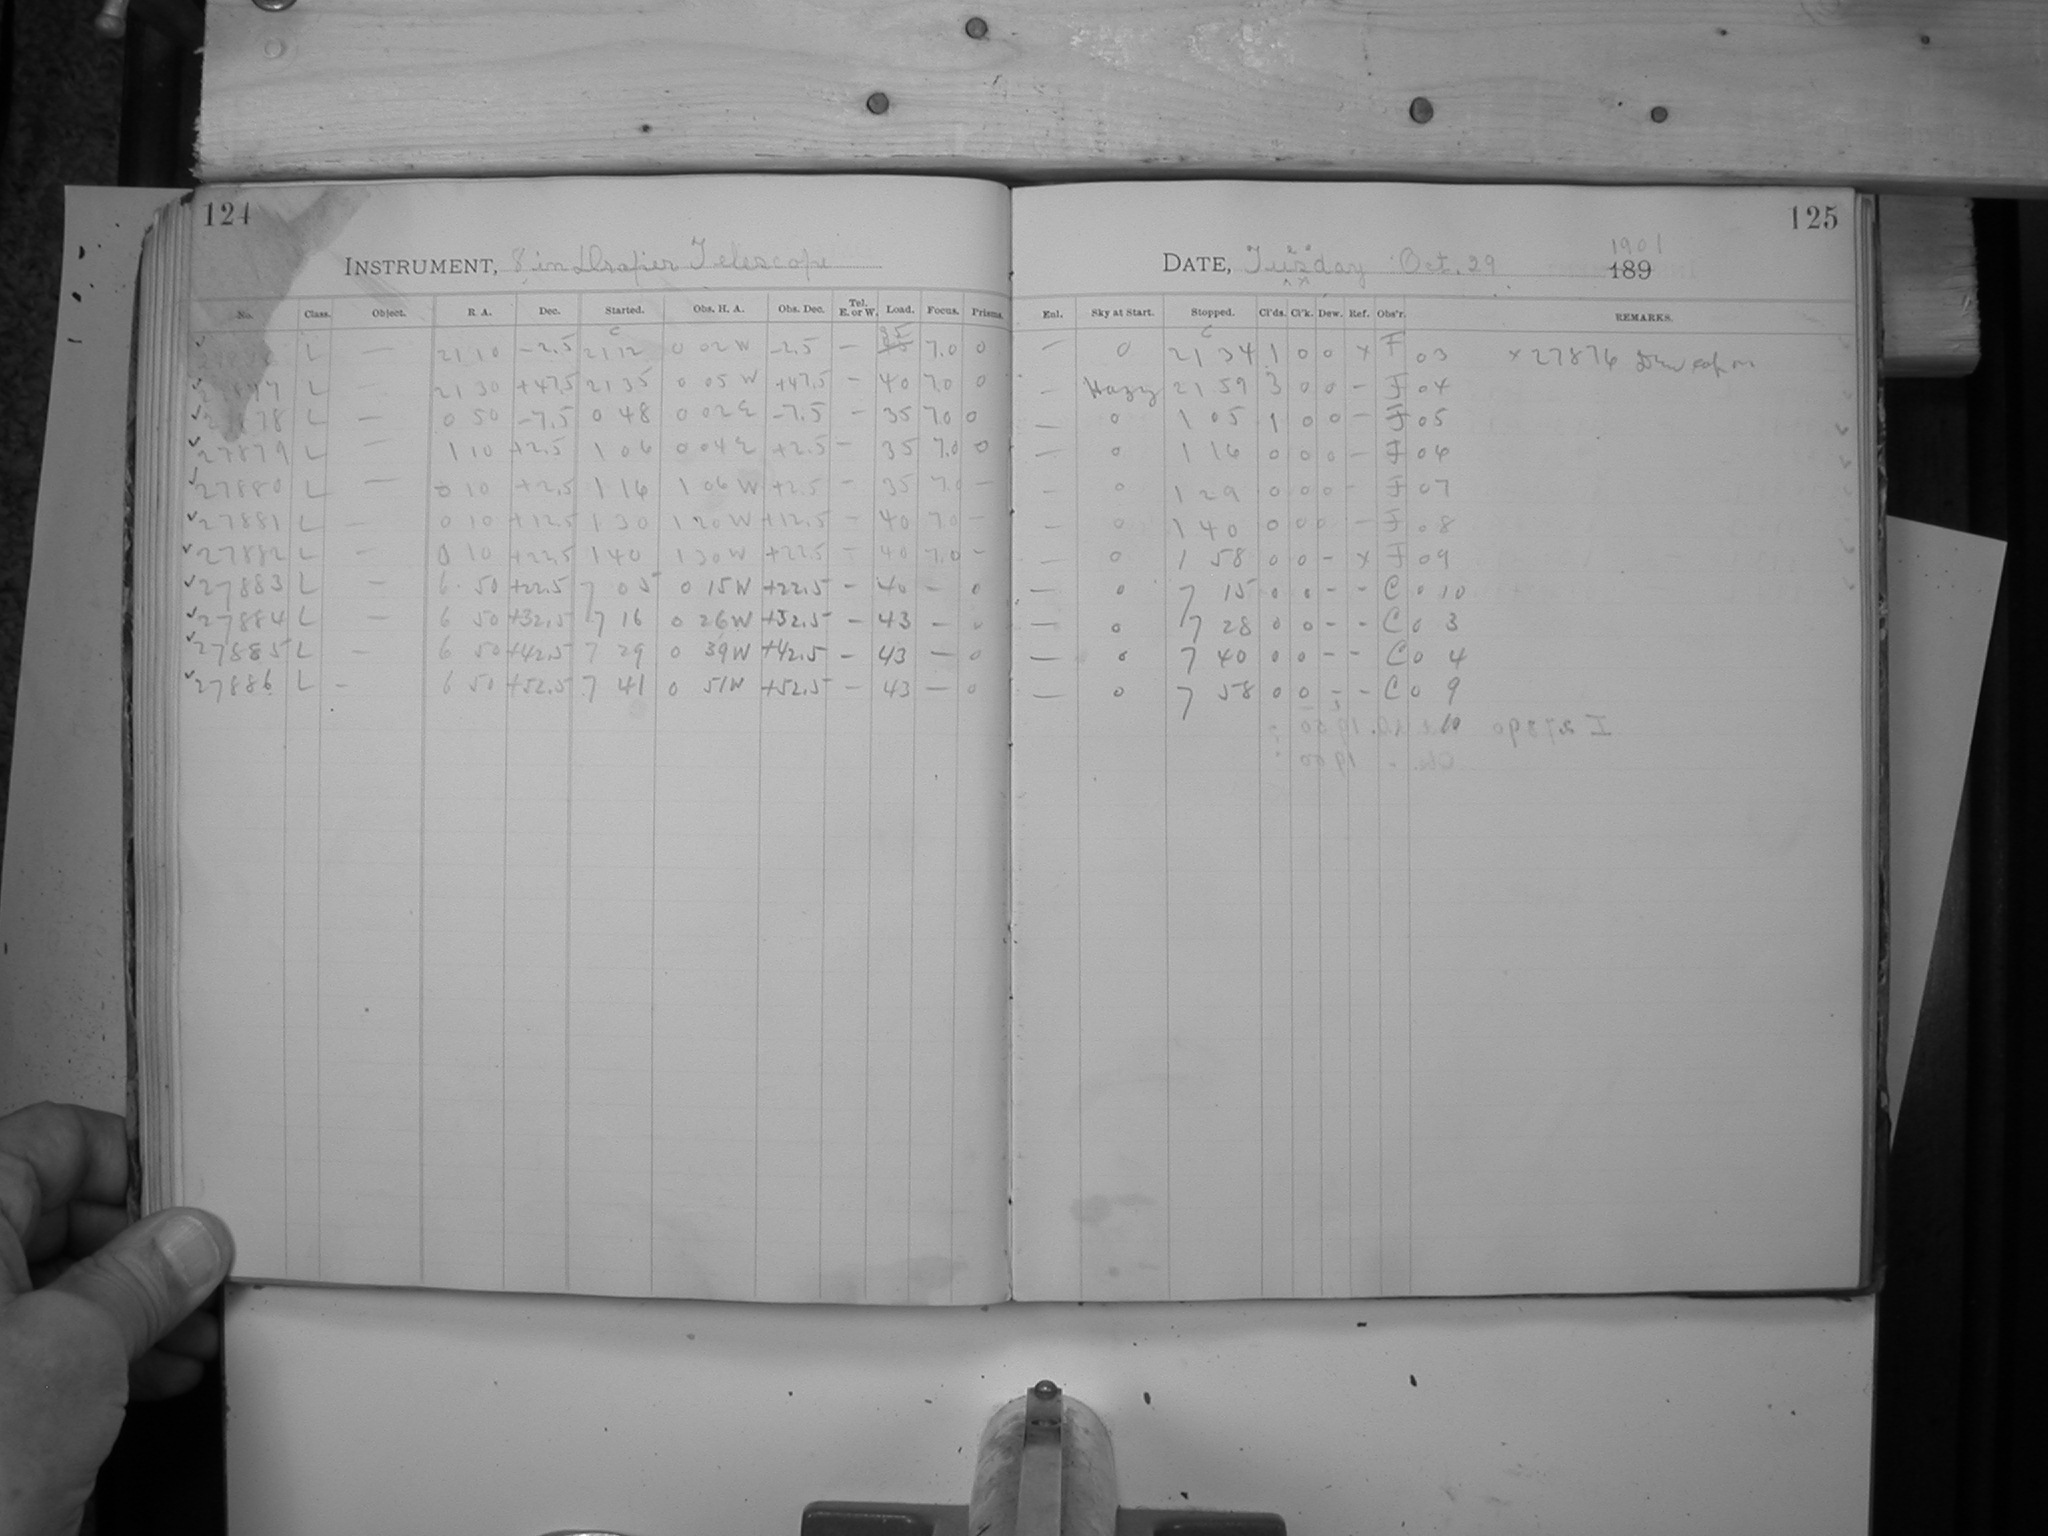 124
INSTRUMENT, 8 in Draper Telescope
No. Class. Object. R. A. Dec. Started. Obs. H. A. Obs. Dec. Tel. E. or W. Load. Focus. Prisms.
L — 21 10 -2.5 21 12 0 02 W -2.5 — 35 7.0 0
L 21 30 +47.5 21 35 0 05 W +47.5 - 40 7.0 0
L — 0 50 -7.5 0 48 0 02 E -7.5 - 35 7.0 0
27879 L — 1 10 +2.5 1 06 0 04 E +2.5 - 35 7.0 0
27880 L — 0 10 +2.5 1 16 1 06 W +2.5 - 35 7.0 -
27881 L — 0 10 +12.5 1 30 1 20 W +12.5 - 40 7.0 -
27882 L — 0 10 +22.5 1 40 1 30 W +22.5 - 40 7.0 -
27883 L — 6 50 +22.5 7 05 0 15 W +22.5 - 40 - 0
27884 L — 6 50 +32.5 7 16 0 26 W +32.5 - 43 - 0
27885 L — 6 50 +42.5 7 29 0 39 W +42.5 - 43 — 0
27886 L - 6 50 +52.5 7 41 0 51 W +52.5 - 43 — 0
125
DATE, Tuesday Oct. 29 1901
189
Enl. Sky at Start. Stopped. Cl'ds. Cl'k. Dew. Ref. Obs'r. REMARKS.
— 0 21 34 1 0 0 x F 03 x 27876
- Hazy 21 59 3 0 0 - F 04
— 0 1 05 1 0 0 - F 05
— 0 1 16 0 0 0 - F 06
- 0 1 29 0 0 0 - F 07
- 0 1 40 0 0 0 - F 08
- 0 1 58 0 0 - x F 09
— 0 7 15 0 0 - - C 0 10
— 0 7 28 0 0 - - C 0 3
— 0 7 40 0 0 - - C 0 4
— 0 7 58 0 0 - - C 0 9